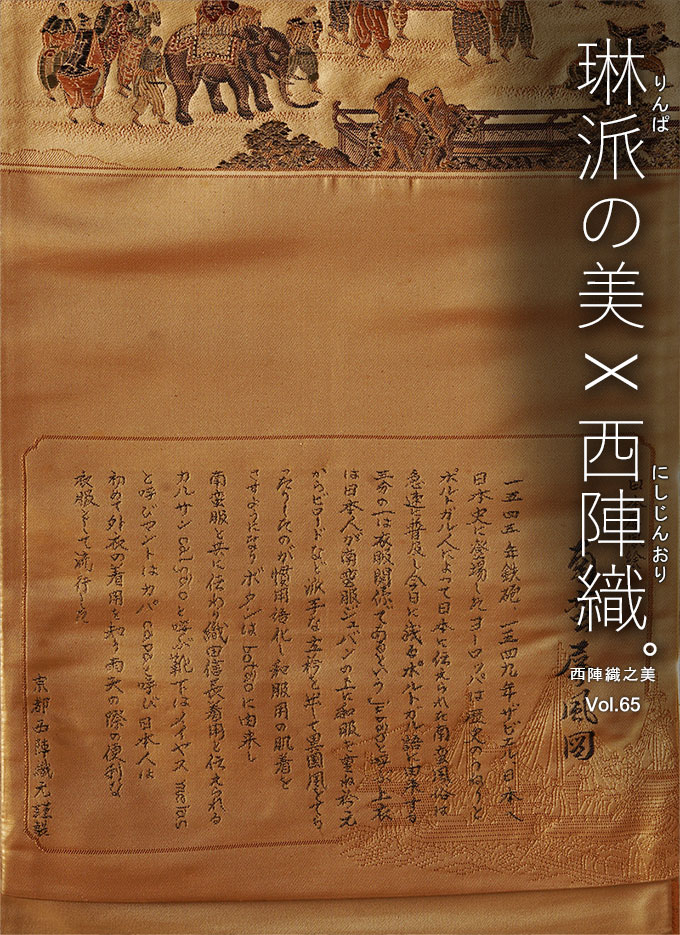 琳派の美×西陣織。
りんぱ
にしじんおり
西陣織之美
Vol.65
南蛮屏風図
一五四五年鉄砲 一五四九年ザビエル日本へ
日本史に登場したヨーロッパは歴史のうねりと
ポルトガル人によって日本に伝えられた南蛮風俗は
急速に普及し今日に残るポルトガル語に由来する
三分の一は衣服関係であるという と呼ぶ上衣
は日本人が南蛮服ジュバンの上に和服を重ね衿元
からビロードなど派手な立衿を 異国風を
ったりしたのが慣用語化し和服用の肌着を
さすようになり ボタンは botão に由来し
南蛮服と共に伝わり織田信長着用と伝えられる
カルサン calção と呼ぶ靴下はメイヤス meias
と呼びマントはカパ capa と呼び 日本人は
初めて外衣の着用を知り雨天の際の便利な
衣服として流行した
京都西陣織元謹製